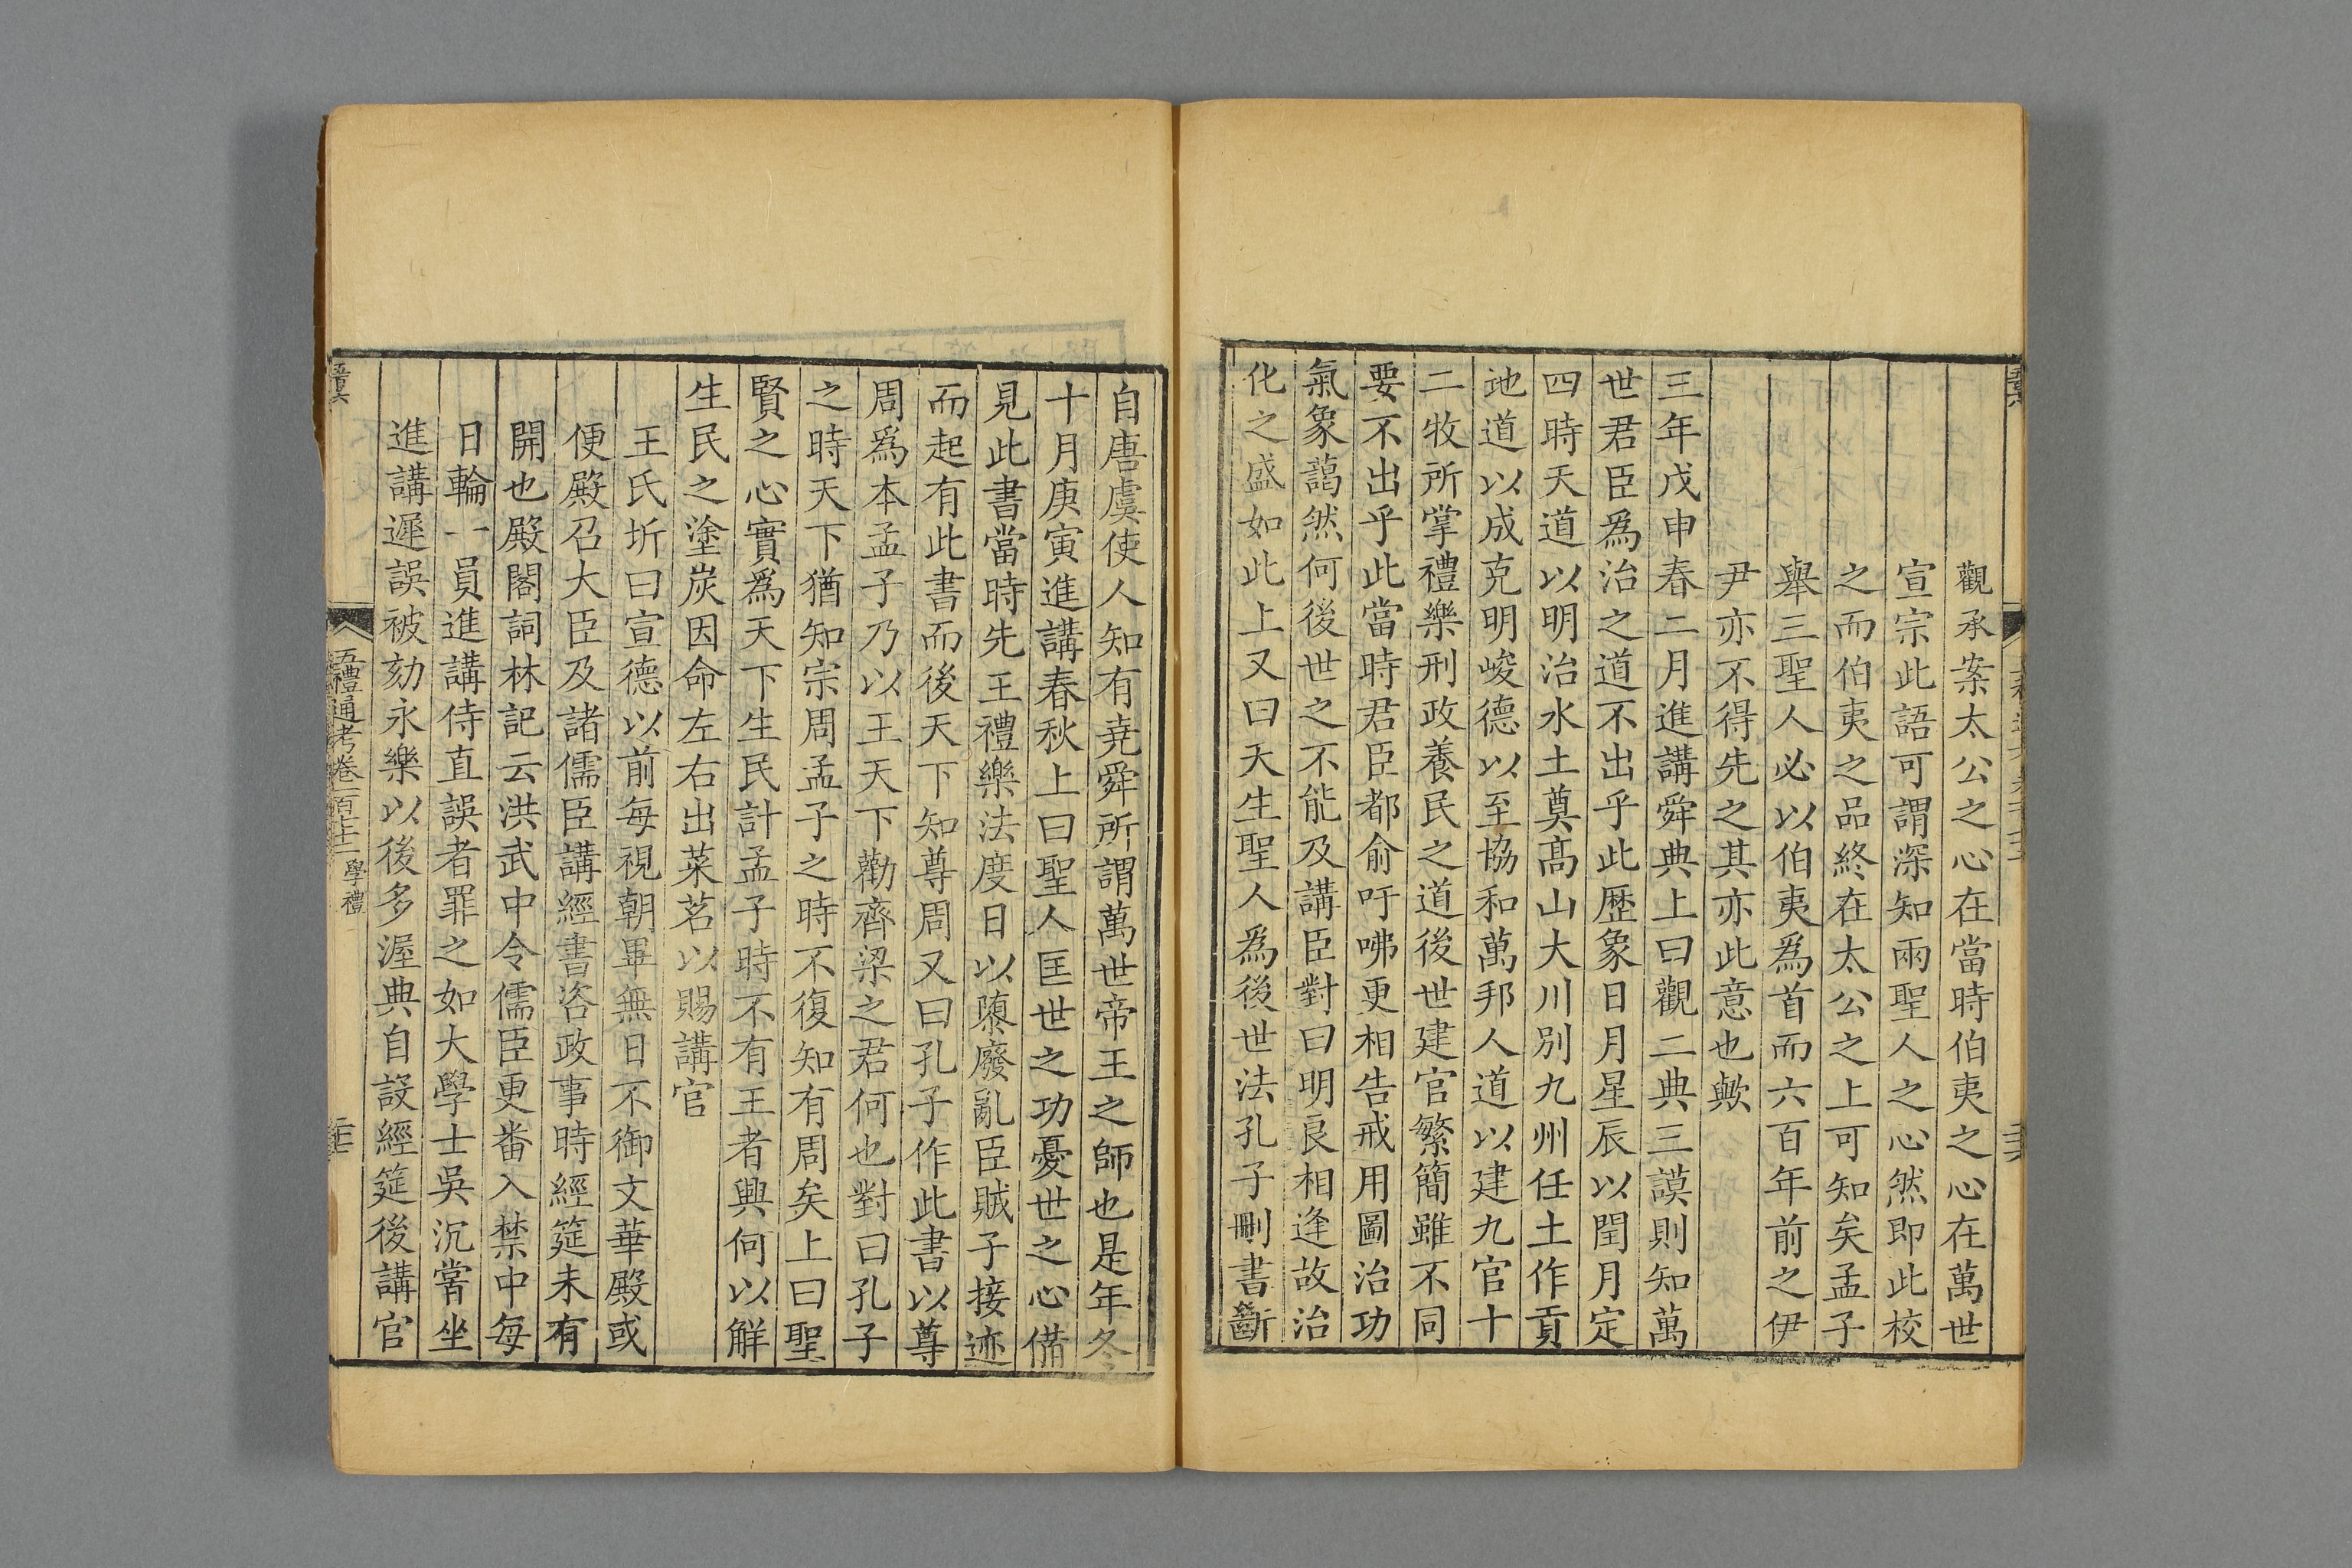 觀承案太公之心在當時伯夷之心在萬世
宣宗此語可謂深知兩聖人之心然即此校
之而伯夷之品終在太公之上可知矣孟子
舉三聖人必以伯夷爲首而六百年前之伊
尹亦不得先之其亦此意也歟
三年戊申春二月進講舜典上曰觀二典三謨則知萬
世君臣爲治之道不出乎此歷象日月星辰以閏月定
四時天道以明治水土奠高山大川別九州任土作貢
地道以成克明峻德以至協和萬邦人道以建九官十
二牧所掌禮樂刑政養民之道後世建官繁簡雖不同
要不出乎此當時君臣都俞吁咈更相告戒用圖治功
氣象藹然何後世之不能及講臣對曰明良相逢故治
化之盛如此上又曰天生聖人爲後世法孔子刪書斷
自唐虞使人知有堯舜所謂萬世帝王之師也是年冬
十月庚寅進講春秋上曰聖人匡世之功憂世之心備
見此書當時先王禮樂法度日以隳廢亂臣賊子接迹
而起有此書而後天下知尊周又曰孔子作此書以尊
周爲本孟子乃以王天下勸齊梁之君何也對曰孔子
之時天下猶知宗周孟子之時不復知有周矣上曰聖
賢之心實爲天下生民計孟子時不有王者興何以解
生民之塗炭因命左右出菜茗以賜講官
王氏圻曰宣德以前每視朝畢無日不御文華殿或
便殿召大臣及諸儒臣講經書咨政事時經筵未有
開也殿閣詞林記云洪武中令儒臣更番入禁中每
日輪一員進講侍直誤者罪之如大學士吳沉嘗坐
進講遲誤被劾永樂以後多渥典自設經筵後講官
五禮通考卷一百七十二 學禮